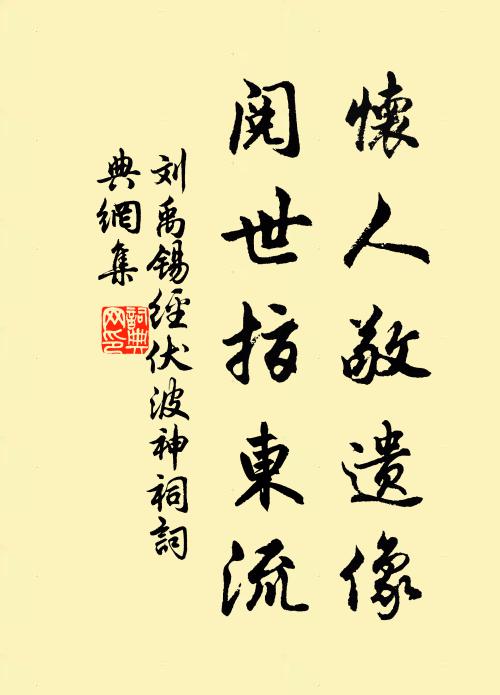 懷人敬遺像
閱世指東流
刘禹锡經伏波神祠詞
典網集
詞典网印